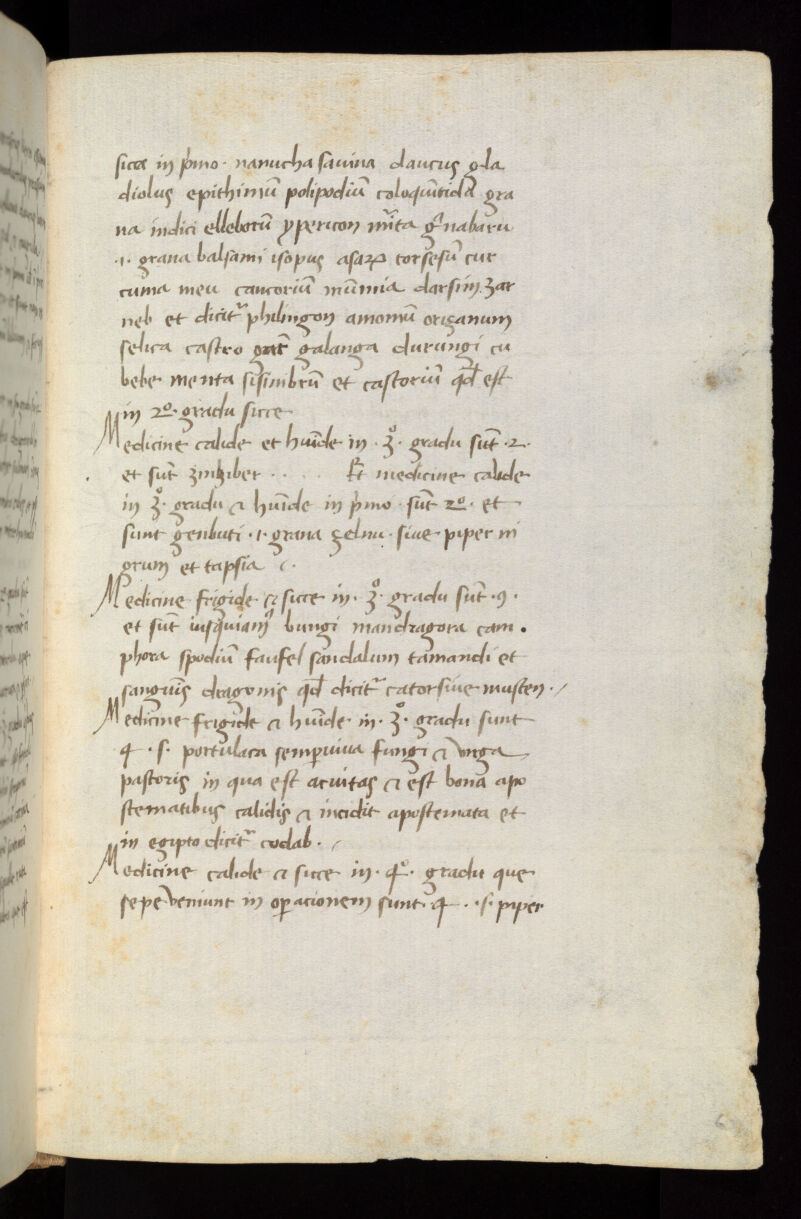 sicca in p̄mo · nanucha savina daucus gla
diolus epithimū polipodiū coloquītida gra
na indici elleborū ypericon mīta gͣnabaru
·i· grana balsami isopus asaꝝ torsesū cur
cuma meu caucoriū mūmia darsin. zar
neb et dicit᷑ philingon amomū origanum
selica castro galanga durungi cu
bebe menta sisimbrū et castoriū qd̄ est
in 2º. gradu sicce
Medicine calide et huīde in · 3º. gradu sūt · 2 ·
et sūt zinziber . . . . . Et medicine calide
in 3º. gradu ⁊ huīde in p̄mo · sūt 2º. et
sunt genbuti · i · grana zelnu · sive piper ni
grum et tapsia
Medicine frigide ⁊ sicce in · 3º. gradu sūt · 9 ·
et sūt iusquiamꝰ bungi mandragora cam .
phora spodiū faufel sandalum tamandi et
sanguīs dragonis qd̄ dicit᷑ cator sive musten · /
Medicine frigide ⁊ huīde · in · 3º. gradu sunt
4 · s · portulaca semp̲viva fungi ⁊ virga
pastoris in qua est acuitas ⁊ est bona apo
stematibus calidis ⁊ incidit apostemata et
in egipto dicit᷑ codab · /
Medicine calide ⁊ sicce in · 4º. gradu que
sepe veniunt in op̲acionem sunt 4 · · s · piper